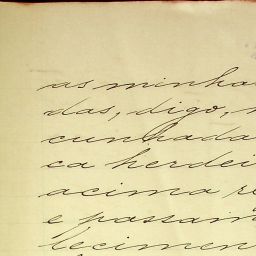 as minha
das, digo,
cunhada
ca herdei
acima re
e passam
lecimen